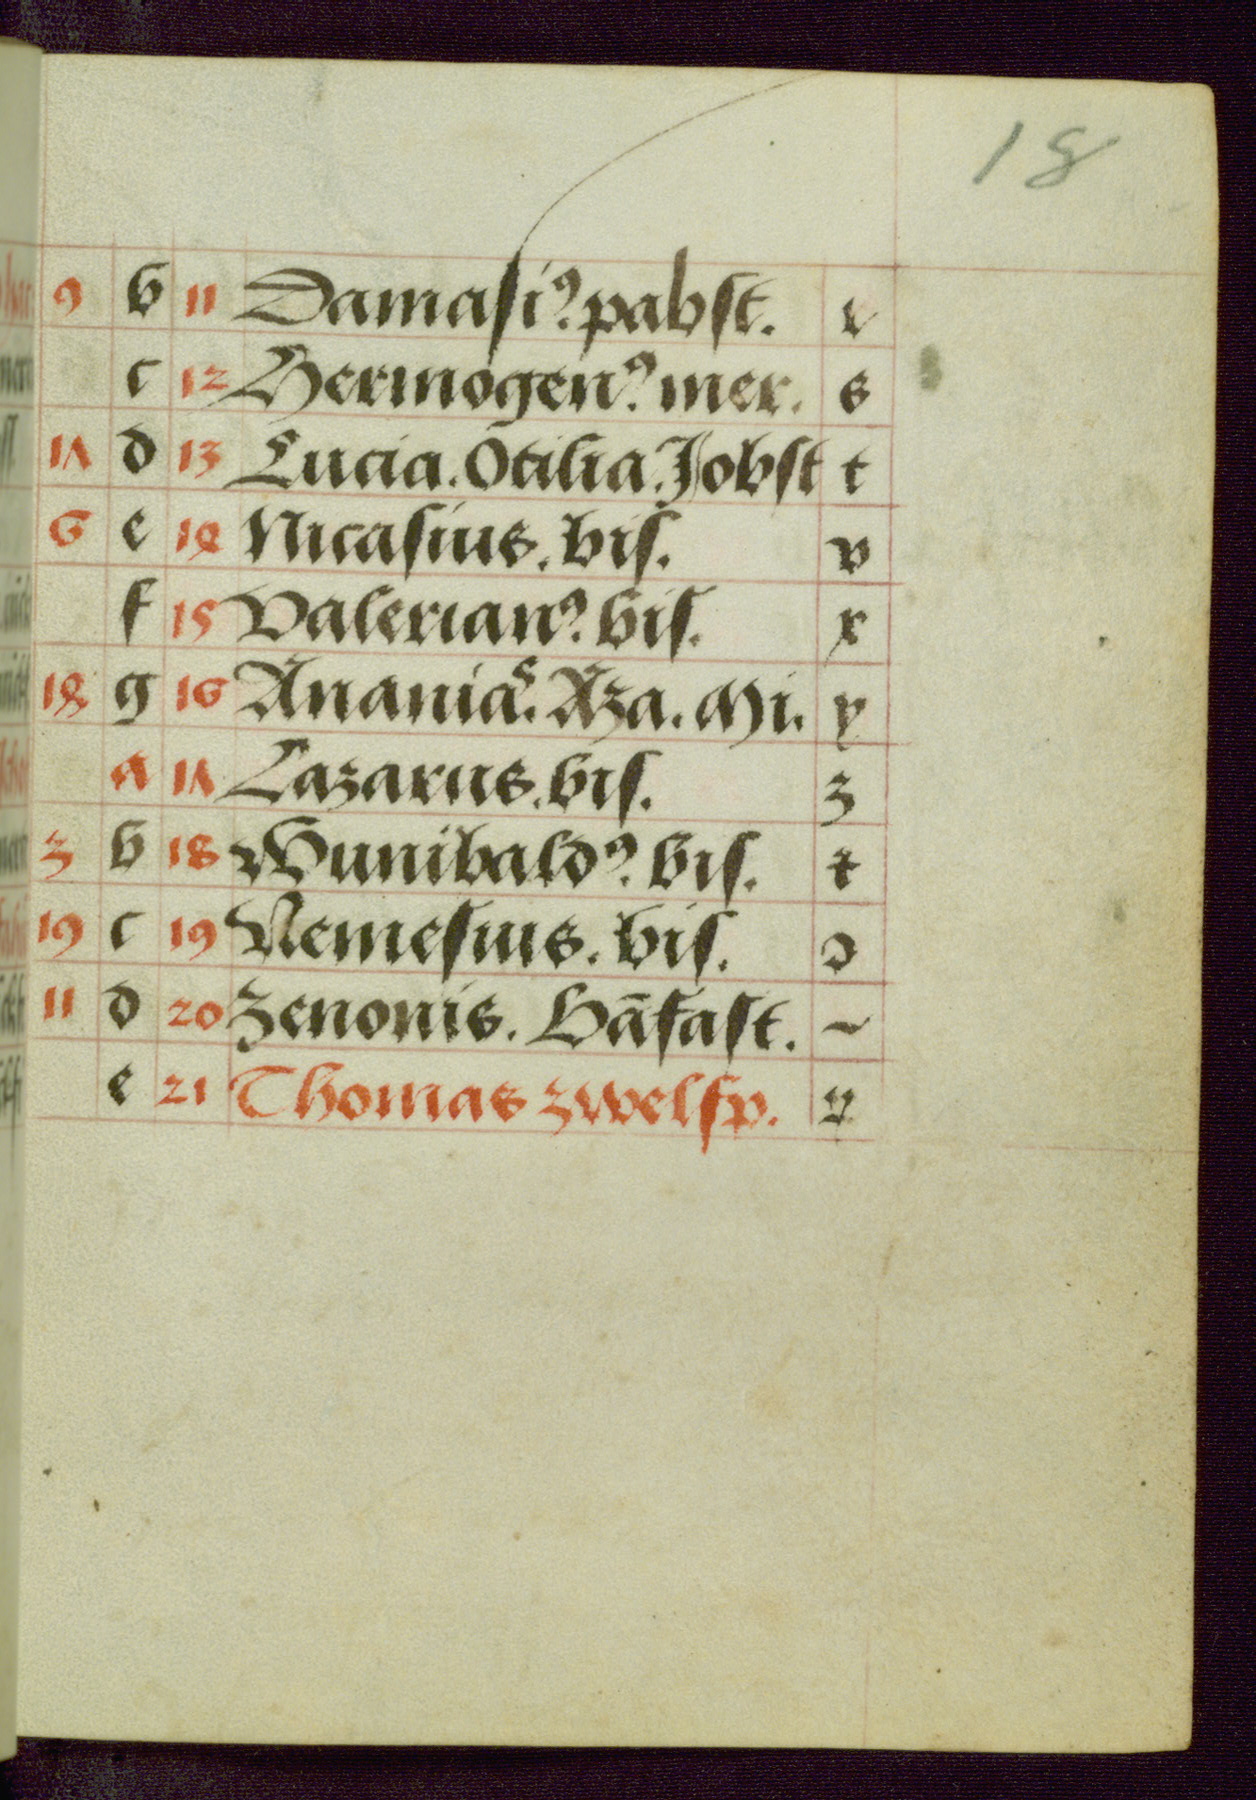 18
9 b 11 Damasiꝰ. pabst. r
c 12 Hermogenꝰ. mer. s
17 d 13 Lucia. Otilia. Jobst t
6 e 14 Nicasius. bis. v
f 15 Valerianꝰ. bis. x
14 g 16 Ananias. Aza. Mi. y
a 17 Lazarus. bis. z
3 b 18 Wunibaldꝰ. bis.
19 c 19 Nemesius. bis. ɔ
11 d 20 Zenonis. Hāfast. ~
e 21 Thomas zwelfp.